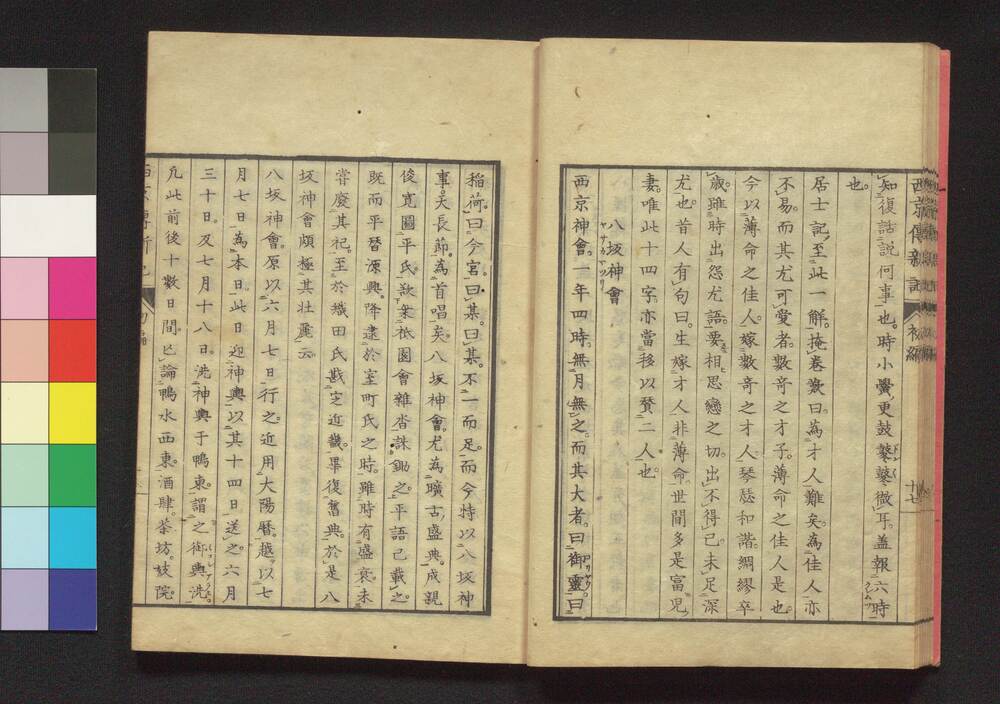 西京傳新記 初編 十七
知。復話説何事也。時小黌更鼓鼕鼕徹耳。蓋報六時
也。
居士記至此一觧。掩卷歎曰。為才人難矣。為佳人亦
不易。而其尤可愛者。數奇之才子。薄命之佳人是也。
今以薄命之佳人。嫁數奇之才人。琴瑟和諧。綢繆卒
歳。雖時出怨尤語。要相思戀之切。出不得已。未足深
尤也。昔人有句曰。生嫁才人非薄命。世間多是富児
妻。唯此十四字。亦當移以賛二人也。
八坂神會
ヤサカマツリ
西京神會。一年四時。無月無之。而其大者。曰御靈。曰
稲荷。曰今宮。曰某。曰某。不一而足。而今特以八坂神
事。天長節。為首唱矣。八坂神會。尤為曠古盛典。成親
俊寛圖平氏。歃枀祇園會雜沓誅鋤之。平語已載之。
既而平替源興。降逮於室町氏之時。雖時有盛衰。未
嘗廢其祀。至於織田氏戡定近畿。畢復舊典。於是八
坂神會頗極其壮麗云
八坂神會。原以六月七日行之。近用大陽暦。越以七
月七日為本日。此日迎神輿。以其十四日送之。六月
三十日。及七月十八日。洗神輿于鴨東。謂之御輿洗。
凢此前後十數日間。亡論鴨水西東。酒肆。茶坊。妓院。